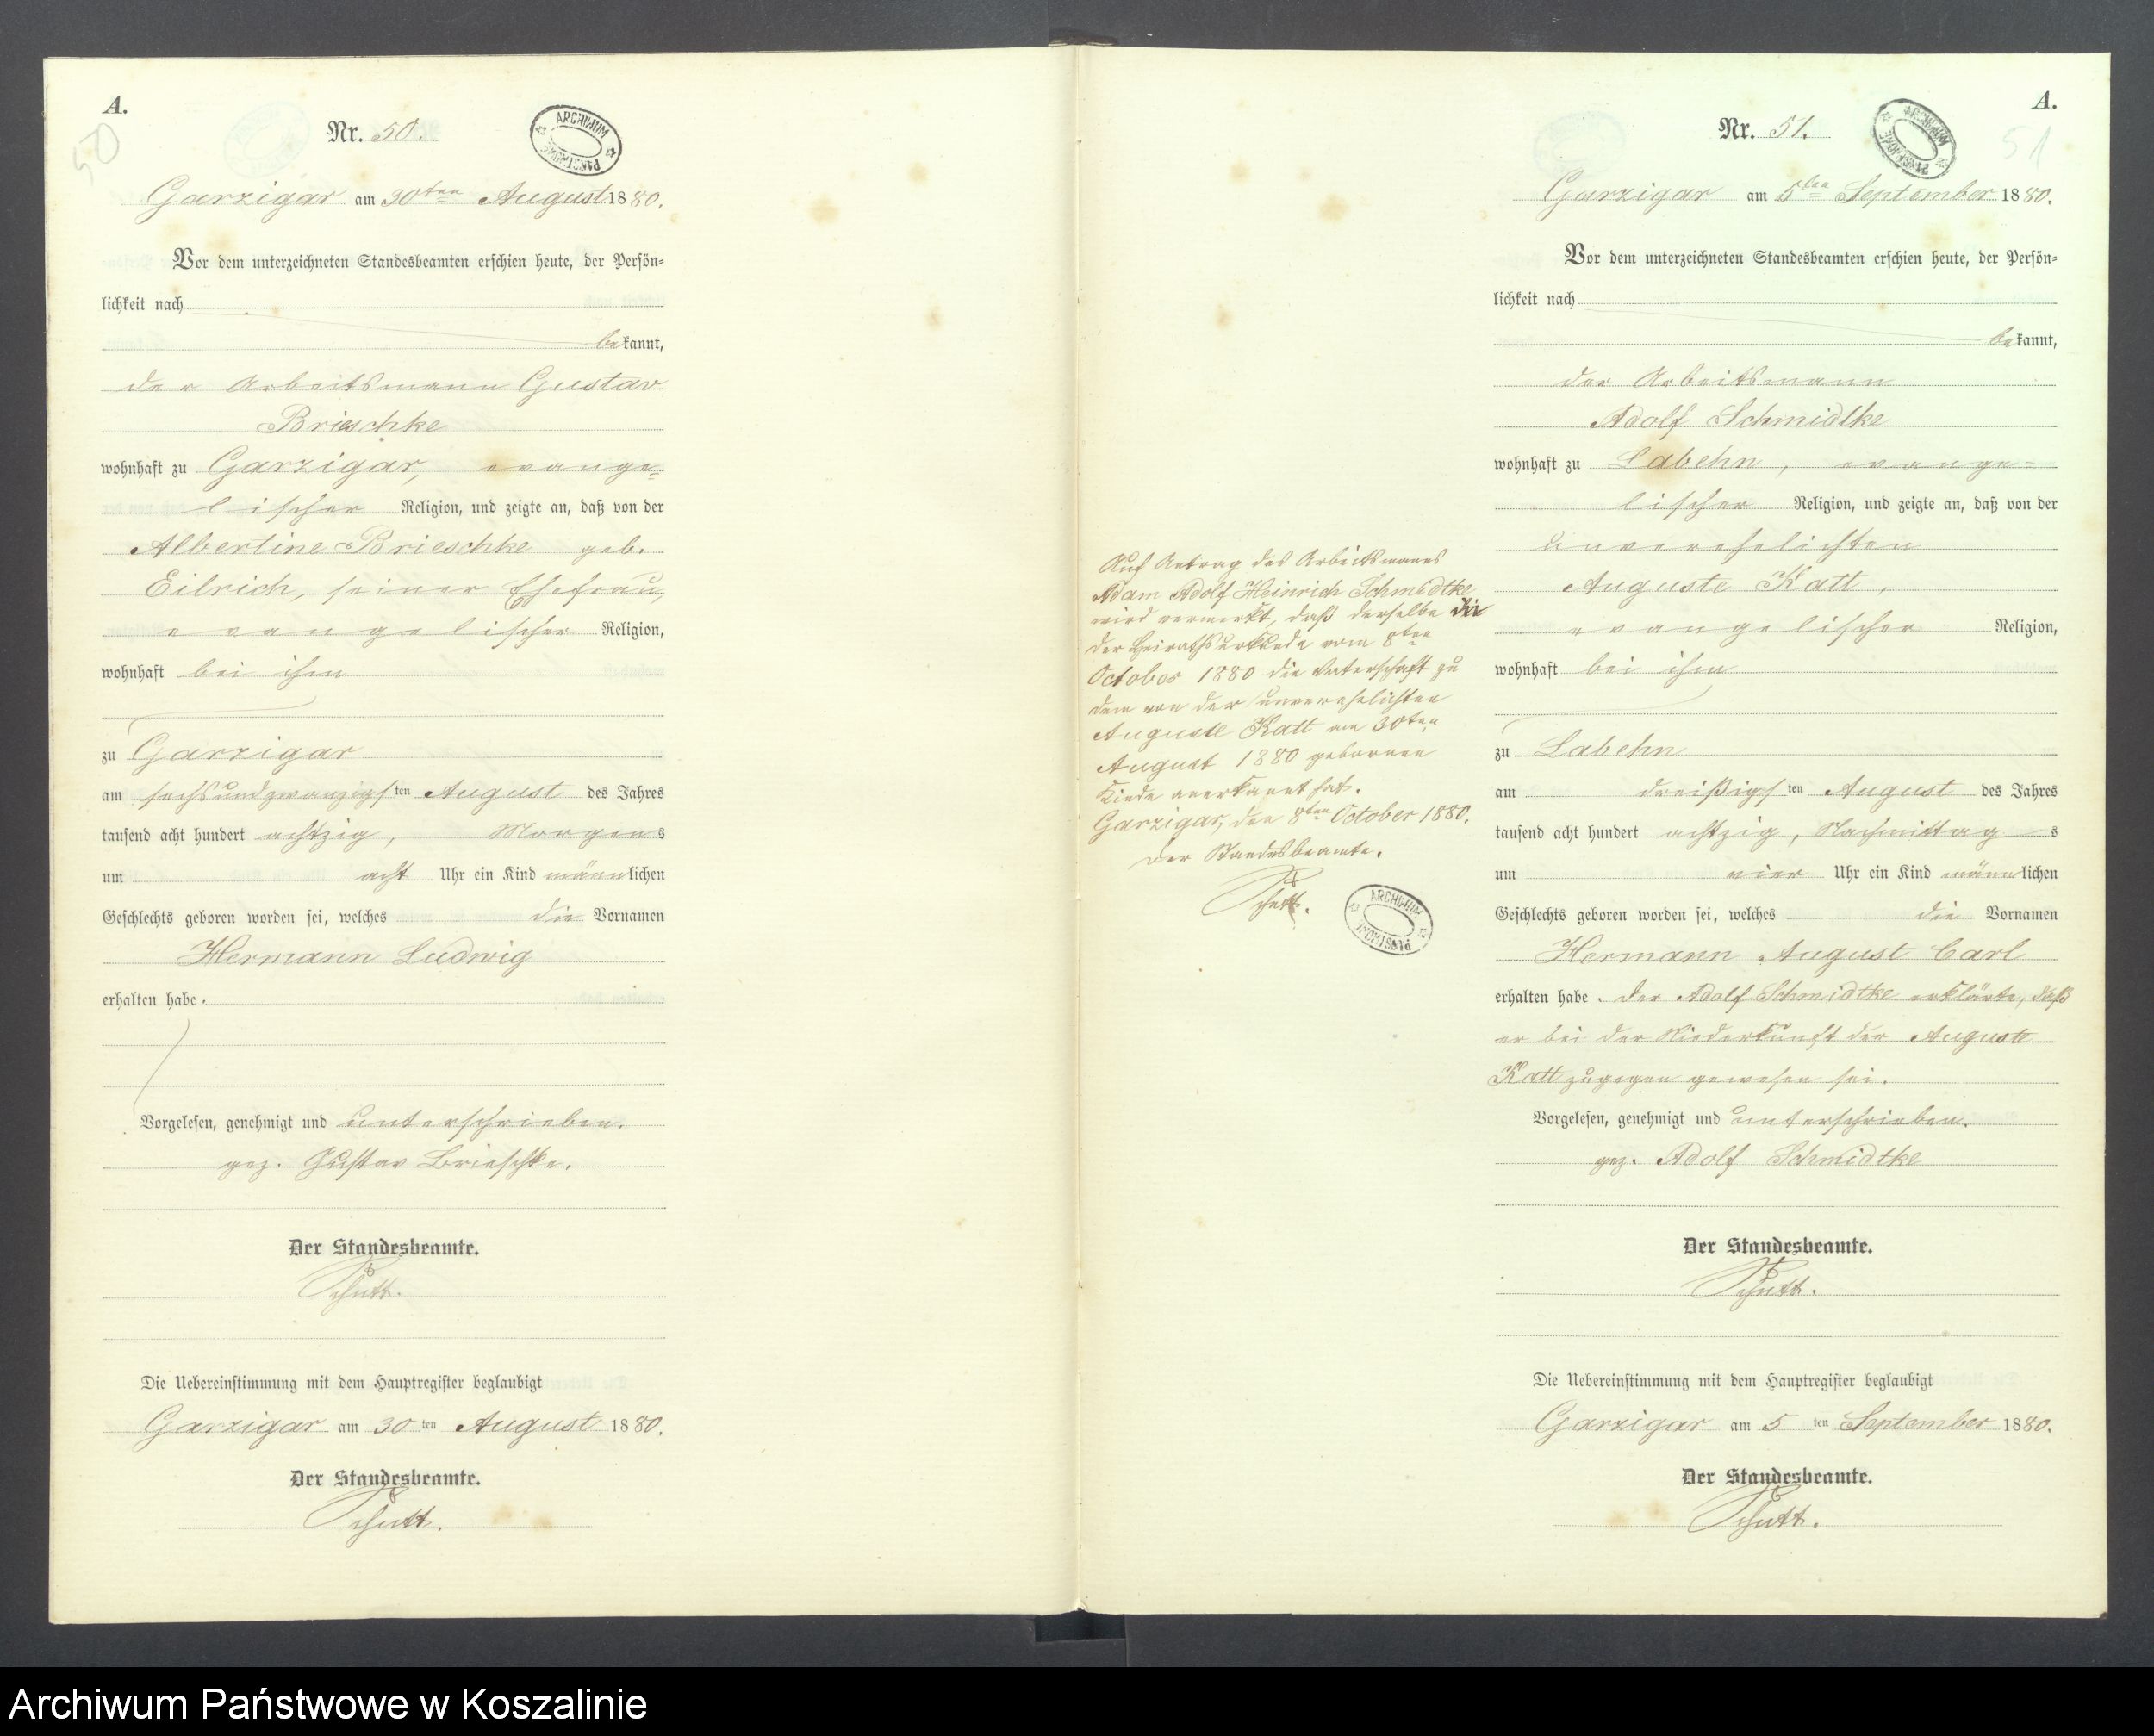 A.
50
Nr. 50.
ARCHIWUM PAŃSTWOWE
Garzigar am 30ten August 1880.
Vor dem unterzeichneten Standesbeamten erschien heute, der Persön-
lichkeit nach
bekannt,
der Arbeitsmann Gustav
Brieschke
wohnhaft zu Garzigar, evange-
lischer Religion, und zeigte an, daß von der
Albertine Brieschke geb.
Eilrich, seiner Ehefrau,
evangelischer Religion,
wohnhaft bei ihm
zu Garzigar
am sechsundzwanzigsten August des Jahres
tausend acht hundert achtzig, Morgens
um acht Uhr ein Kind männlichen
Geschlechts geboren worden sei, welches die Vornamen
Hermann Ludwig
erhalten habe.
Vorgelesen, genehmigt und unterschrieben.
gez. Gustav Brieschke.
Der Standesbeamte.
Schutt.
Die Uebereinstimmung mit dem Hauptregister beglaubigt
Garzigar am 30ten August 1880.
Der Standesbeamte.
Schutt.
Auf Antrag des Arbeitsmanns
Adam Adolf Heinrich Schmidtke
wird vermerkt, daß derselbe in
der Heirathsurkunde vom 8ten
October 1880 die Vaterschaft zu
dem von der unverehelichten
Auguste Katt am 30ten
August 1880 geborenen
Kinde anerkannt hat.
Garzigar, den 8ten October 1880.
Der Standesbeamte.
Schutt.
ARCHIWUM
A.
51
Nr. 51.
ARCHIWUM PAŃSTWOWE
Garzigar am 5ten September 1880.
Vor dem unterzeichneten Standesbeamten erschien heute, der Persön-
lichkeit nach
bekannt,
der Arbeitsmann
Adolf Schmidtke
wohnhaft zu Labehn, evange-
lischer Religion, und zeigte an, daß von der
unverehelichten
Auguste Katt,
evangelischer Religion,
wohnhaft bei ihm
zu Labehn
am dreißigsten August des Jahres
tausend acht hundert achtzig, Nachmittags
um vier Uhr ein Kind männlichen
Geschlechts geboren worden sei, welches die Vornamen
Hermann August Carl
erhalten habe. Der Adolf Schmidtke erklärte, daß
er bei der Niederkunft der Auguste
Katt zugegen gewesen sei.
Vorgelesen, genehmigt und unterschrieben.
gez. Adolf Schmidtke
Der Standesbeamte.
Schutt.
Die Uebereinstimmung mit dem Hauptregister beglaubigt
Garzigar am 5ten September 1880.
Der Standesbeamte.
Schutt.
Archiwum Państwowe w Koszalinie